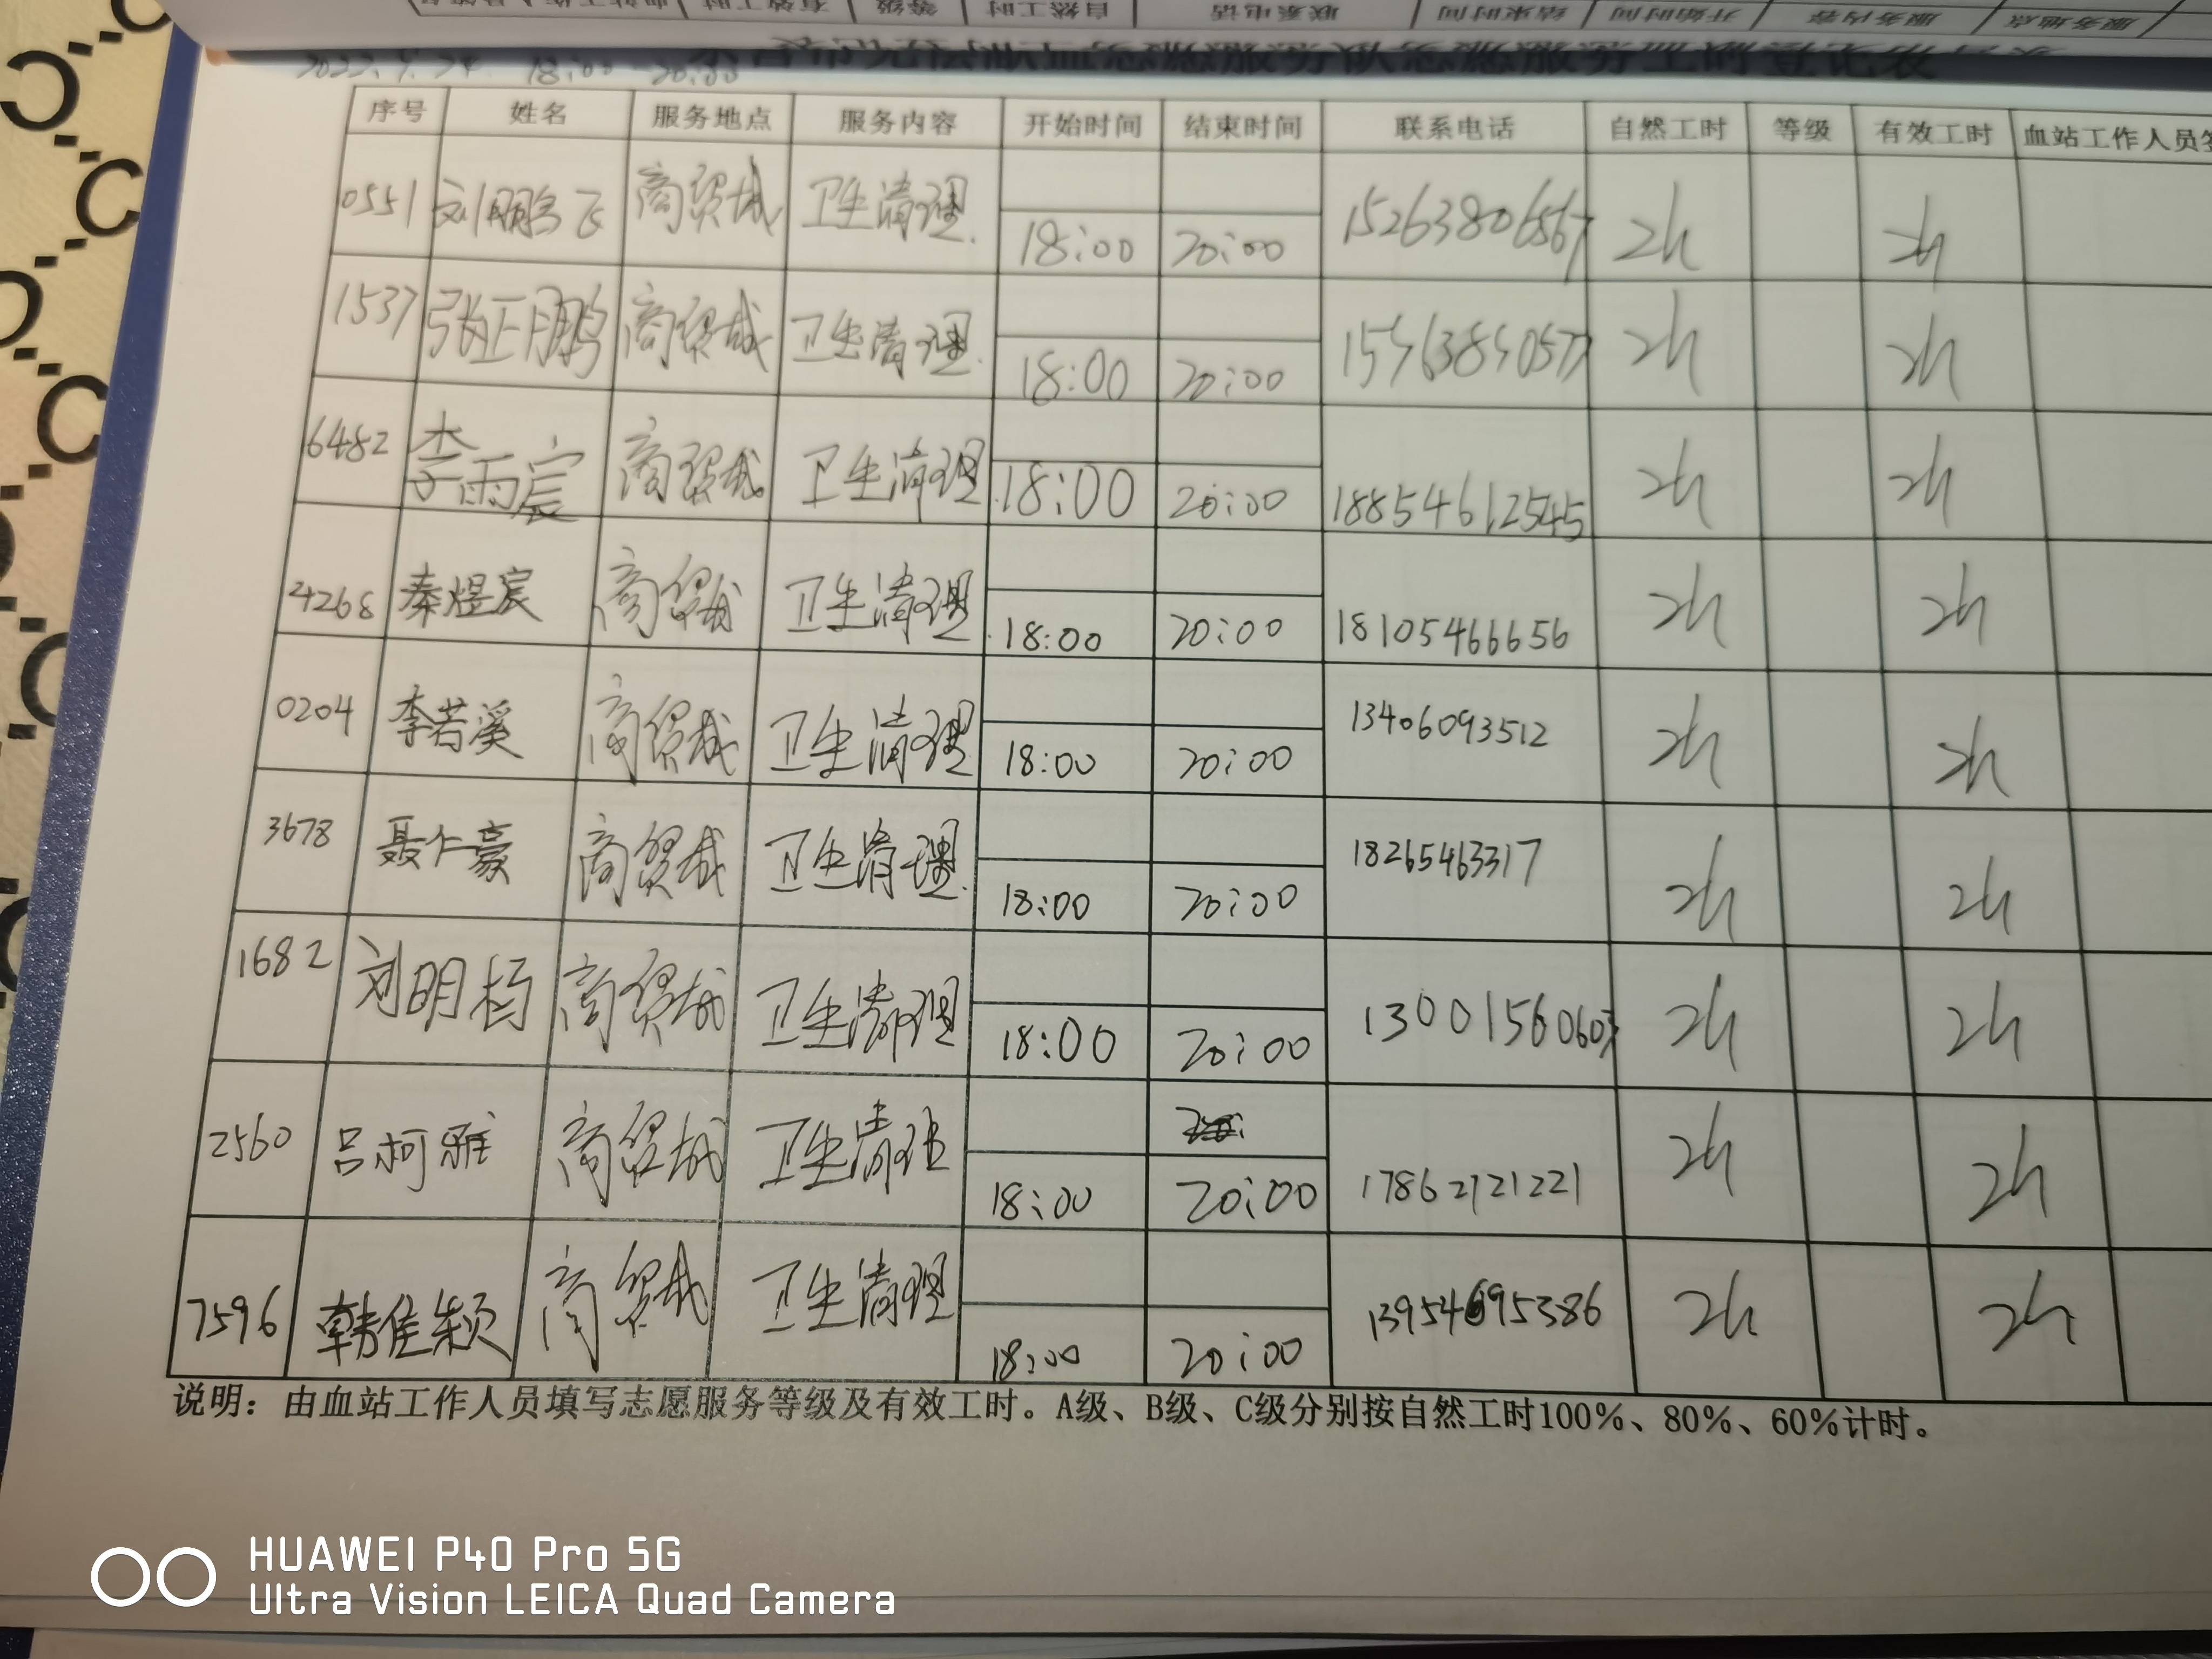 血站工作人员签 有效工时 等级 自然工时 联系电话 结束时间 开始时间 服务内容 服务地点
无偿献血志愿服务队志愿服务工时登记表
18:00-20:00
序号 姓名 服务地点 服务内容 开始时间 结束时间 联系电话 自然工时 等级 有效工时 血站工作人员签
0551 刘鹏飞 商贸城 卫生清理 18:00 20:00 15263806567 2h 2h
1537 张正鹏 商贸城 卫生清理 18:00 20:00 2h 2h
6482 李雨宸 商贸城 卫生清理 18:00 20:00 18854612545 2h 2h
4268 秦煜宸 商贸城 卫生清理 18:00 20:00 18105466656 2h 2h
0204 李若溪 商贸城 卫生清理 18:00 20:00 13406093512 2h 2h
3678 聂仁豪 商贸城 卫生清理 18:00 20:00 18265463317 2h 2h
1682 刘明杨 商贸城 卫生清理 18:00 20:00 2h 2h
2560 吕柯雅 商贸城 卫生清理 18:00 20:00 17862121221 2h 2h
7596 韩佳颖 商贸城 卫生清理 18:00 20:00 13954695386 2h 2h
说明：由血站工作人员填写志愿服务等级及有效工时。A级、B级、C级分别按自然工时100%、80%、60%计时。
HUAWEI P40 Pro 5G
Ultra Vision LEICA Quad Camera